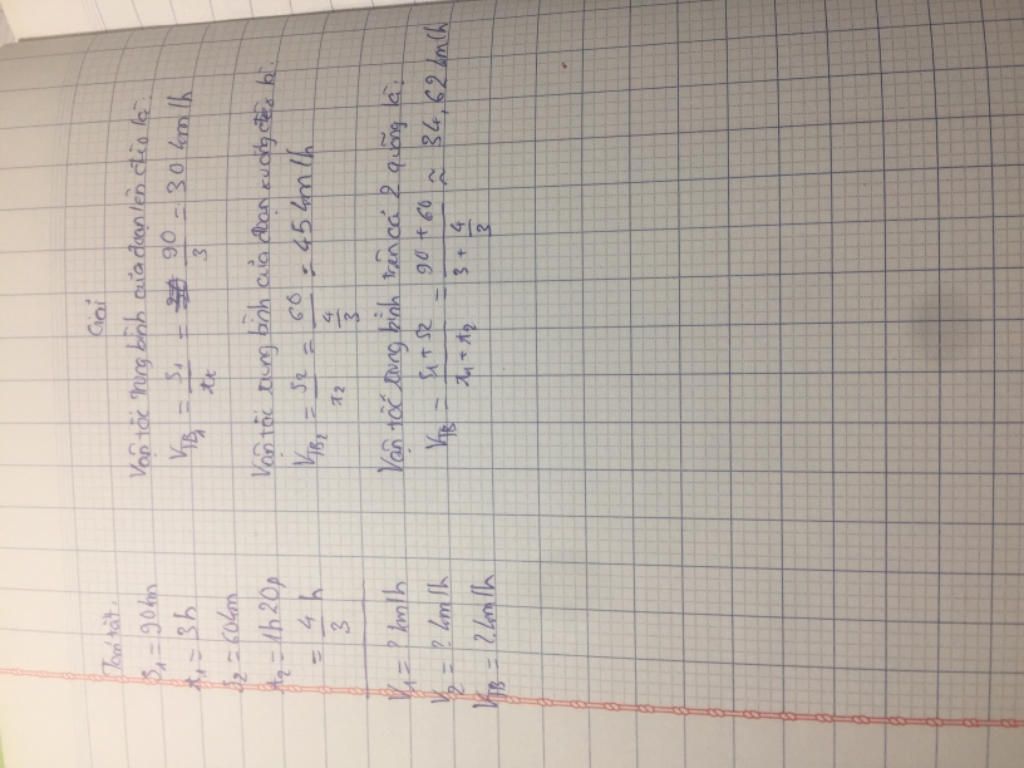 Tóm tắt.
S₁ = 90km
t₁ = 3h
S₂ = 60km
t₂ = 1h20p
= 4/3 h
V₁ = ? km/h
V₂ = ? km/h
V_TB = ? km/h
Giải
Vận tốc trung bình của đoạn lên đèo là
V_TB₁ = S₁/t₁ = 90/3 = 30 km/h
Vận tốc trung bình của đoạn xuống đèo là:
V_TB₂ = S₂/t₂ = 60/(4/3) = 45 km/h
Vận tốc trung bình trên cả 2 quãng là:
V_TB = (S₁+S₂)/(t₁+t₂) = (90+60)/(3+4/3) ≈ 34,62 km/h